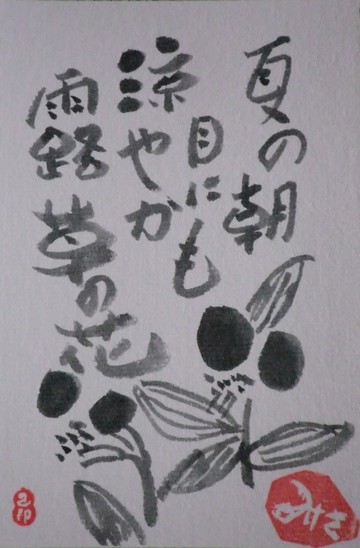 夏の朝
目にも
涼やか
露草の花